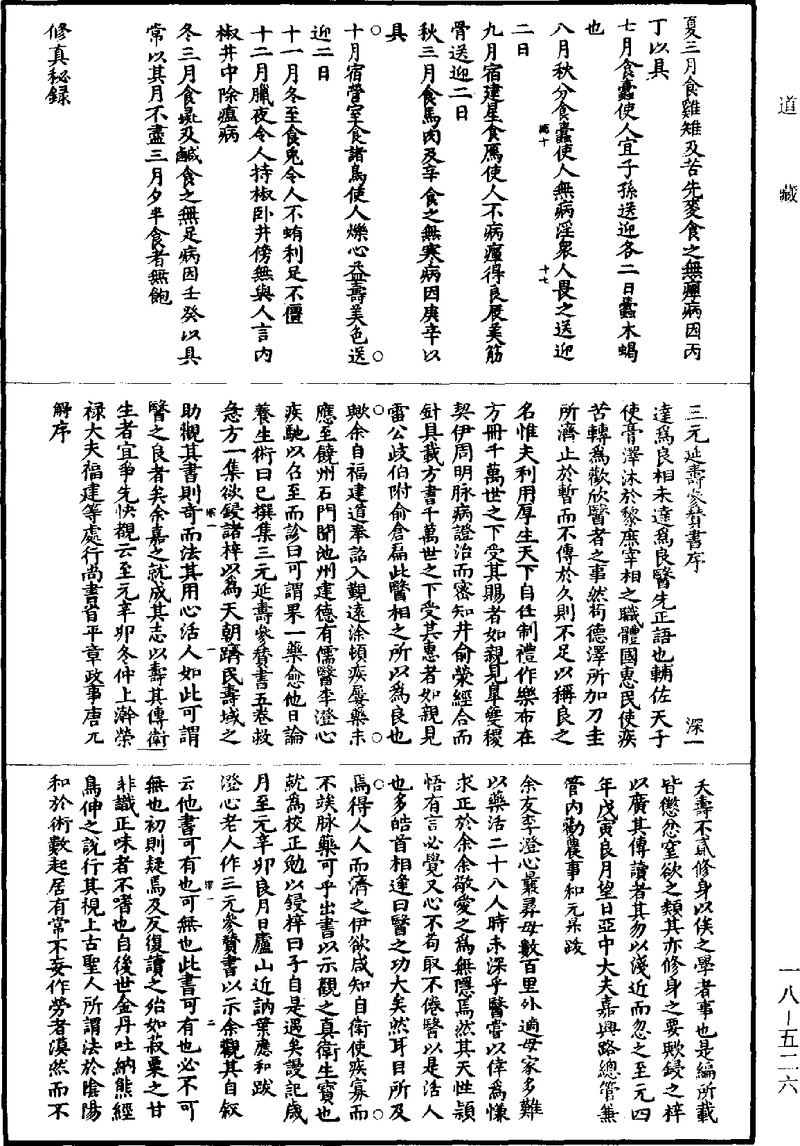 道藏
夏三月食雞雉及苦先麥食之無癉病因丙
丁以具
七月食蠹使人宜子孫送迎各二日蠹木蝎
也
八月秋分食蠹使人無病淫眾人畏之送迎
二日
九月宿建星食鴈使人不病癉得良屐美筋
骨送迎二日
秋三月食馬肉及辛食之無寒病因庚辛以
具
十月宿營室食諸鳥使人爍心益壽美色送
迎二日
十一月冬至食兔令人不蛕利足不僵
十二月臘夜令人持椒臥井傍無與人言內
椒井中除瘟病
冬三月食彘及鹹食之無足病因壬癸以具
常以其月不盡三月夕半食者無飽
修真秘録
三元延壽參贊書序 深一
達為良相未達為良醫先正語也輔佐天子
使膏澤沐於黎庶宰相之職體國惠民使疾
苦轉為歡欣醫者之事然苟德澤所加刀圭
所濟止於暫而不傳於久則不足以稱良之
名惟夫利用厚生天下自任制禮作樂布在
方冊千萬世之下受其賜者如親見皐夔稷
契伊周明脉病證治而審知井俞滎經合而
針具載方書千萬世之下受其惠者如親見
雷公歧伯附俞倉扁此醫相之所以為良也
歟余自福建道奉詔入覲遠涂頓疾屢藥未
應至饒州石門聞池州建德有儒醫李澄心
疾馳以召至而診曰可謂果一藥愈他日論
養生術曰已撰集三元延壽參贊書五卷救
急方一集欲鋟諸梓以為天朝躋民壽域之
助觀其書則奇而法其用心活人如此可謂
醫之良者矣余嘉之就成其志以壽其傳衛
生者宜爭先快觀云至元辛卯冬仲上澣榮
禄大夫福建等處行尚書省平章政事唐兀
䚟序
夭壽不貳修身以俟之學者事也是編所載
皆懲忿窒欲之類其亦修身之要歟鋟之梓
以廣其傳讀者其勿以淺近而忽之至元四
年戊寅良月望日亞中大夫嘉興路總管兼
管內勸農事和元昇跋
余友李澄心最㝷母數百里外適母家多難
以藥活二十八人時未深乎醫嘗以倖為慊
求正於余余敬愛之為無隱焉然其天性穎
悟有言必覺又心不苟取不倦醫以是活人
也多皓首相逢曰醫之功大矣然耳目所及
焉得人人而濟之伊欲咸知自衛使疾寡而
不竢脉藥可乎出書以示觀之真衛生寶也
就為校正勉以鋟梓曰子自是遇矣謾記歲
月至元辛卯良月日廬山近訥葉應和跋
澄心老人作三元參贊書以示余觀其自叙
云他書可有也可無也此書可有也必不可
無也初則疑焉及反復讀之殆如菽粟之甘
非識正味者不嗜也自後世金丹吐納熊經
鳥伸之說行其視上古聖人所謂法於陰陽
和於術數起居有常不妄作勞者漠然而不
一八—五二六